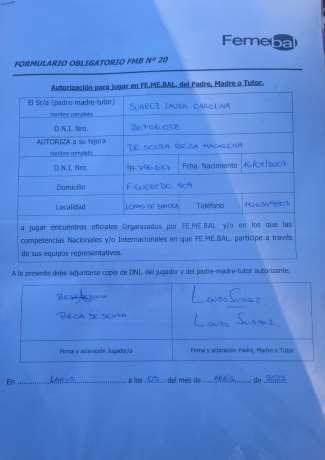 Femebal
FORMULARIO OBLIGATORIO FMB Nº 20
Autorización para jugar en FE.ME.BAL. del Padre, Madre o Tutor.
El Sr/a (padre-madre-tutor)
nombre completo
SUAREZ LAURA CAROLINA
D.N.I. Nro.
AUTORIZA a su hijo/a
nombre completo
DE SOUZA BREZA MACARENA
D.N.I. Nro.
Fcha. Nacimiento
Domicilio
Localidad
LOMAS DE ZAMORA
Teléfono
a jugar encuentros oficiales Organizados por FE.ME.BAL. y/o en los que las
competencias Nacionales y/o Internacionales en que FE.ME.BAL. participe a través
de sus equipos representativos.
A la presente debe adjuntarse copia de DNI, del jugador y del padre-madre-tutor autorizante.
Laura Suarez
DE SOUZA
Laura Suarez
Firma y aclaración Jugador/a
Firma y aclaración Padre, Madre o Tutor
En LANUS a los 05 del mes de ABRIL de 2022